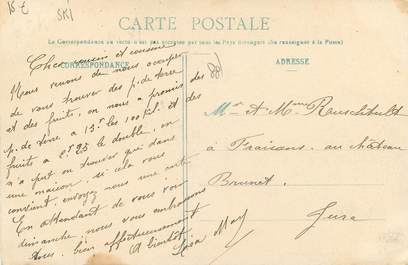 15 €
SK1
CARTE POSTALE
La Correspondance au recto n'est pas acceptée par tous les Pays étrangers (Se renseigner à la Poste)
CORRESPONDANCE
ADRESSE
Cher cousin et cousine
Nous venons de nous occuper
de vous trouver des p. de terre
et des fruits, on nous a promis des
p. de terre à 13f les 100 kil. et des
fruits à le double, on
n'a put en trouver que dans
une maison, si cela vous
convient, envoyez nous une carte
En attendant de vous voir
dimanche, nous vous embrassons
tous bien affectueusement
A bientôt
May
Mr & Mme
à Fraisans au château
Brunet
Jura